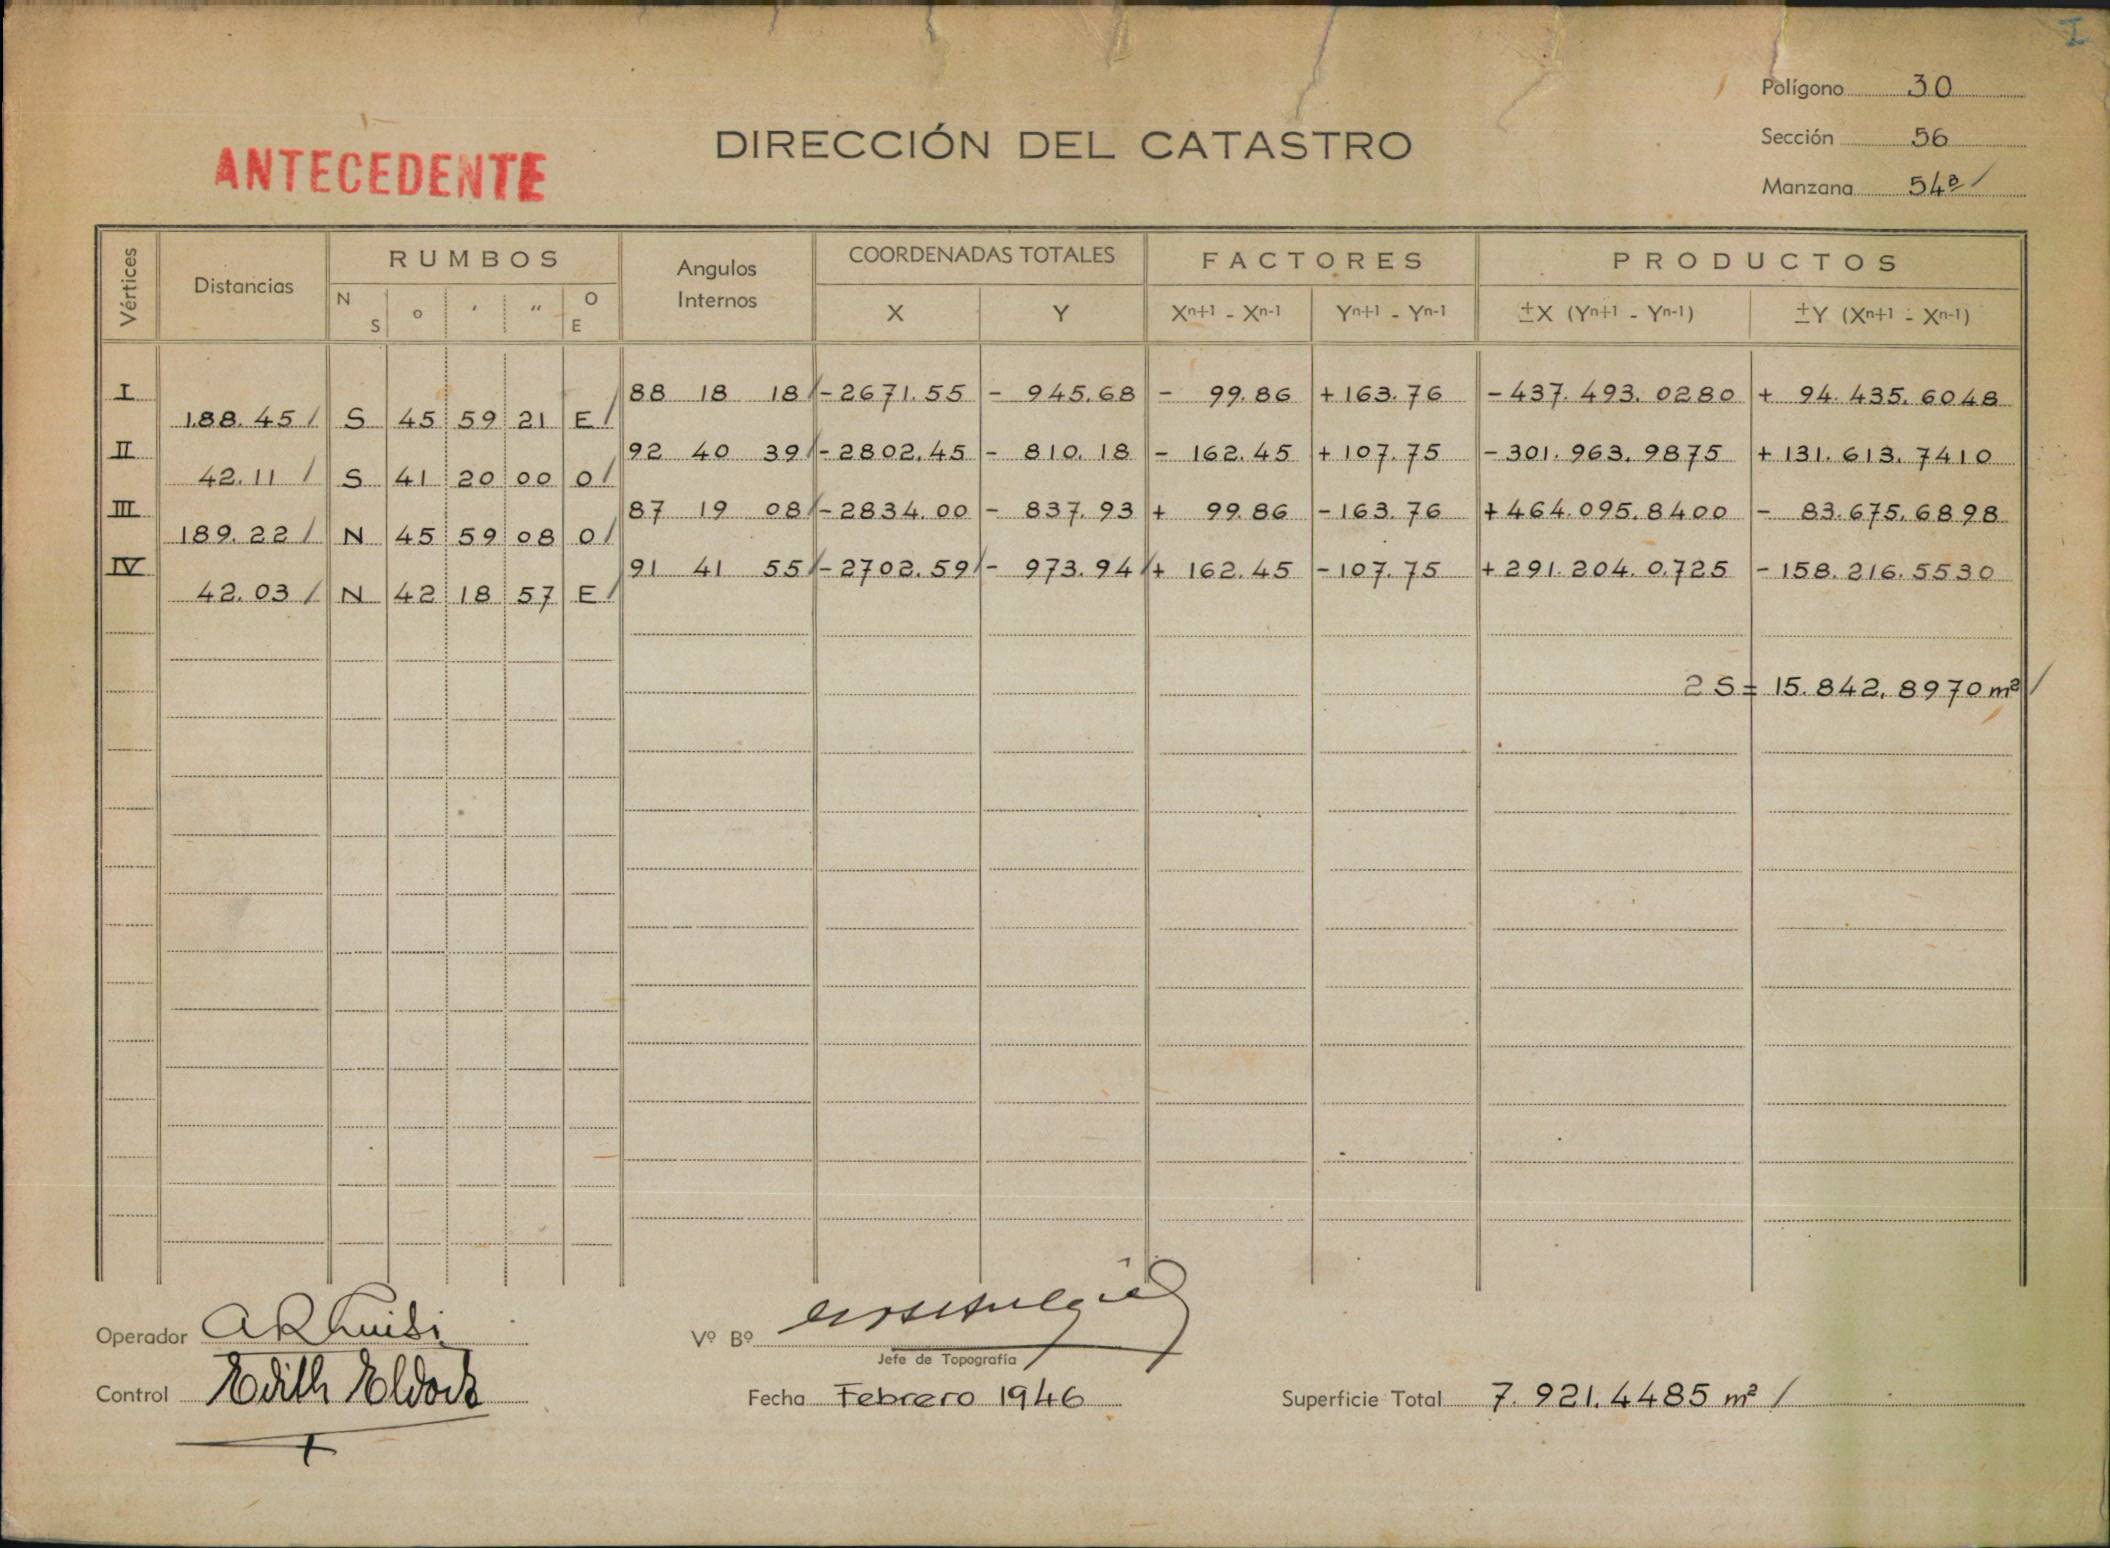 I
Polígono 30
DIRECCIÓN DEL CATASTRO
Sección 56
ANTECEDENTE
Manzana 54B /
Vértices Distancias RUMBOS Angulos Internos COORDENADAS TOTALES FACTORES PRODUCTOS
N S o ' " O E X Y Xn+1 - Xn-1 Yn+1 - Yn-1 ±X (Yn+1 - Yn-1) ±Y (Xn+1 - Xn-1)
I 88 18 18 / -2671.55 - 945.68 - 99.86 +163.76 -437.493.0280 + 94.435.6048
188.45 / S 45 59 21 E /
II 92 40 39 / -2802.45 - 810.18 - 162.45 +107.75 -301.963.9875 +131.613.7410
42.11 / S 41 20 00 O /
III 87 19 08 / -2834.00 - 837.93 + 99.86 -163.76 +464.095.8400 - 83.675.6898
189.22 / N 45 59 08 O /
IV 91 41 55 / -2702.59 / - 973.94 / + 162.45 -107.75 +291.204.0725 -158.216.5530
42.03 / N 42 18 57 E /
2 S = 15.842,8970 m² /
Operador
Vº Bº
Jefe de Topografía
Control Edith
Fecha Febrero 1946
Superficie Total 7.921.4485 m² /